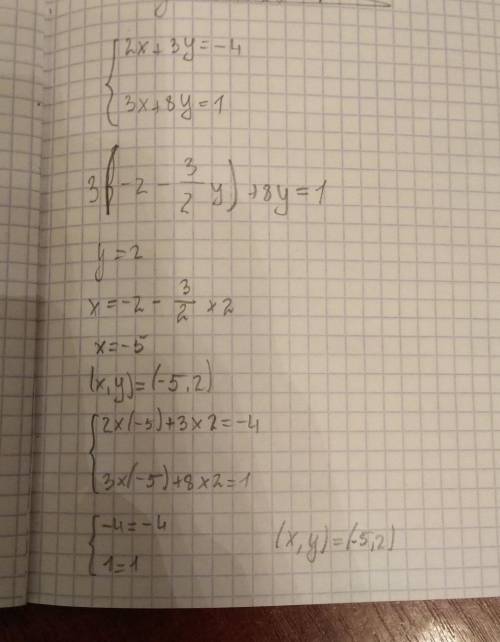 {2x+3y=-4
3x+8y=1
3(-2-3/2y)+8y=1
y=2
x=-2-3/2×2
x=-5
(x,y)=(-5,2)
{2×(-5)+3×2=-4
3×(-5)+8×2=1
{-4=-4
1=1
(x,y)=(-5,2)